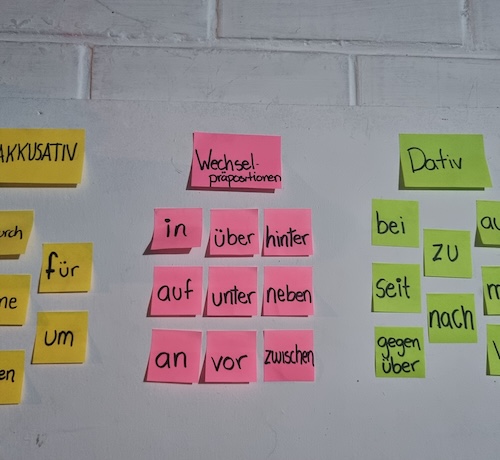 AKKUSATIV
urch
für
ne
um
en
Wechsel-
präpositionen
in über hinter
auf unter neben
an vor zwischen
Dativ
bei
zu
au
seit
nach
m
gegen
über